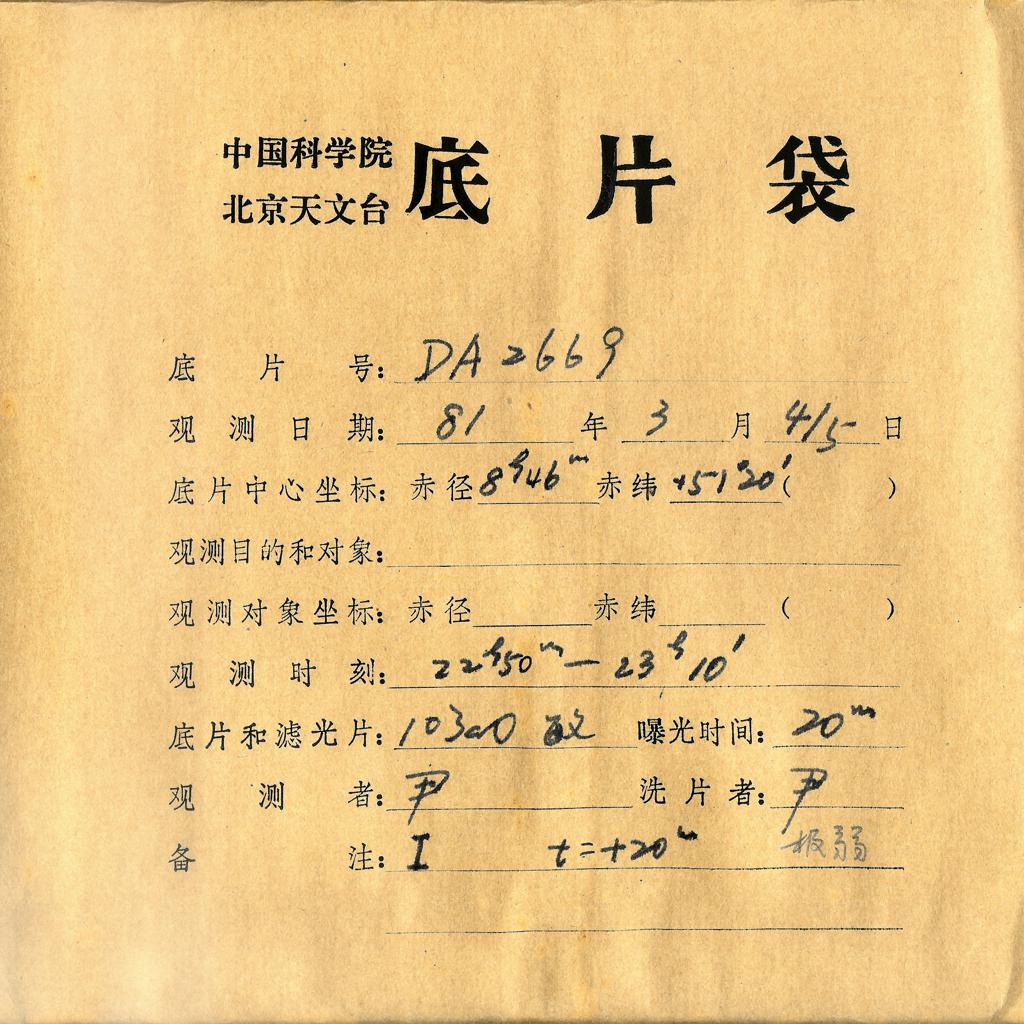 中国科学院
北京天文台
底片袋
底片号: DA2669
观测日期: 81年3月4/5日
底片中心坐标: 赤径8h46m赤纬+51°20′( )
观测目的和对象:
观测对象坐标: 赤径 赤纬 ( )
观测时刻: 22h50m—23h10′
底片和滤光片: 103aO 敏 曝光时间: 20m
观测者: 尹 洗片者: 尹
备注: I t=+20m 极弱